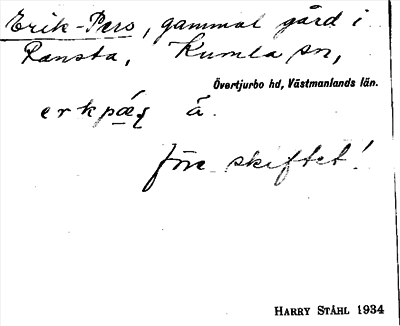 Erik-Pers, gammal gård i
Ransta, Kumla sn,
Övertjurbo hd, Västmanlands län.
å.
före skiftet!
HARRY STÅHL 1934